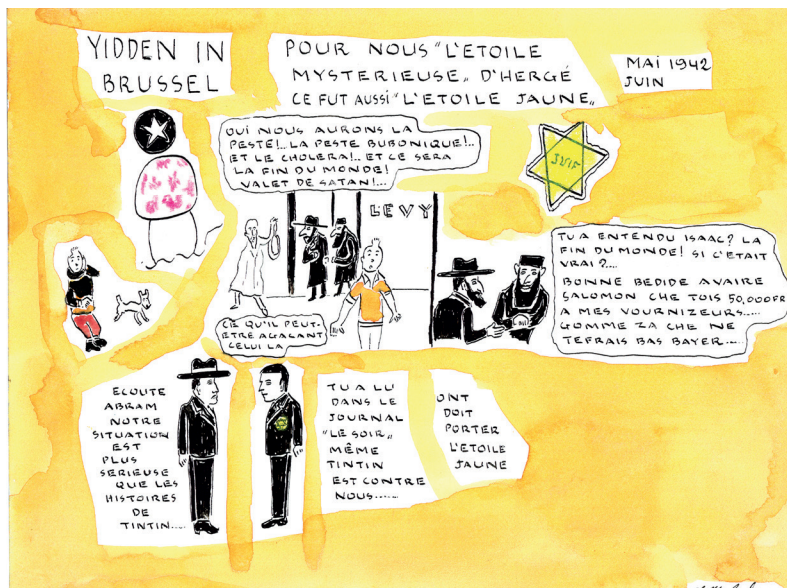 YIDDEN IN
BRUSSEL
POUR NOUS "L'ETOILE
MYSTERIEUSE„ D'HERGÉ
CE FUT AUSSI "L'ETOILE JAUNE„
MAI 1942
JUIN
OUI NOUS AURONS LA
PESTE!.. LA PESTE BUBONIQUE!..
ET LE CHOLERA!.. ET CE SERA
LA FIN DU MONDE!
VALET DE SATAN!...
JUIF
LEVY
TU A ENTENDU ISAAC? LA
FIN DU MONDE! SI C'ETAIT
VRAI?....
BONNE BEDIDE AVAIRE
SALOMON CHE TOIS 50,000FR
A MES VOURNIZEURS.....
GOMME ZA CHE NE
TEFRAIS BAS BAYER.....
CE QU'IL PEUT-
ETRE AGAÇANT
CELUI LA
ECOUTE
ABRAM
NOTRE
SITUATION
EST
PLUS
SERIEUSE
QUE LES
HISTOIRES
DE
TINTIN.....
TU A LU
DANS LE
JOURNAL
"LE SOIR„
MÊME
TINTIN
EST CONTRE
NOUS......
ONT
DOIT
PORTER
L'ETOILE
JAUNE